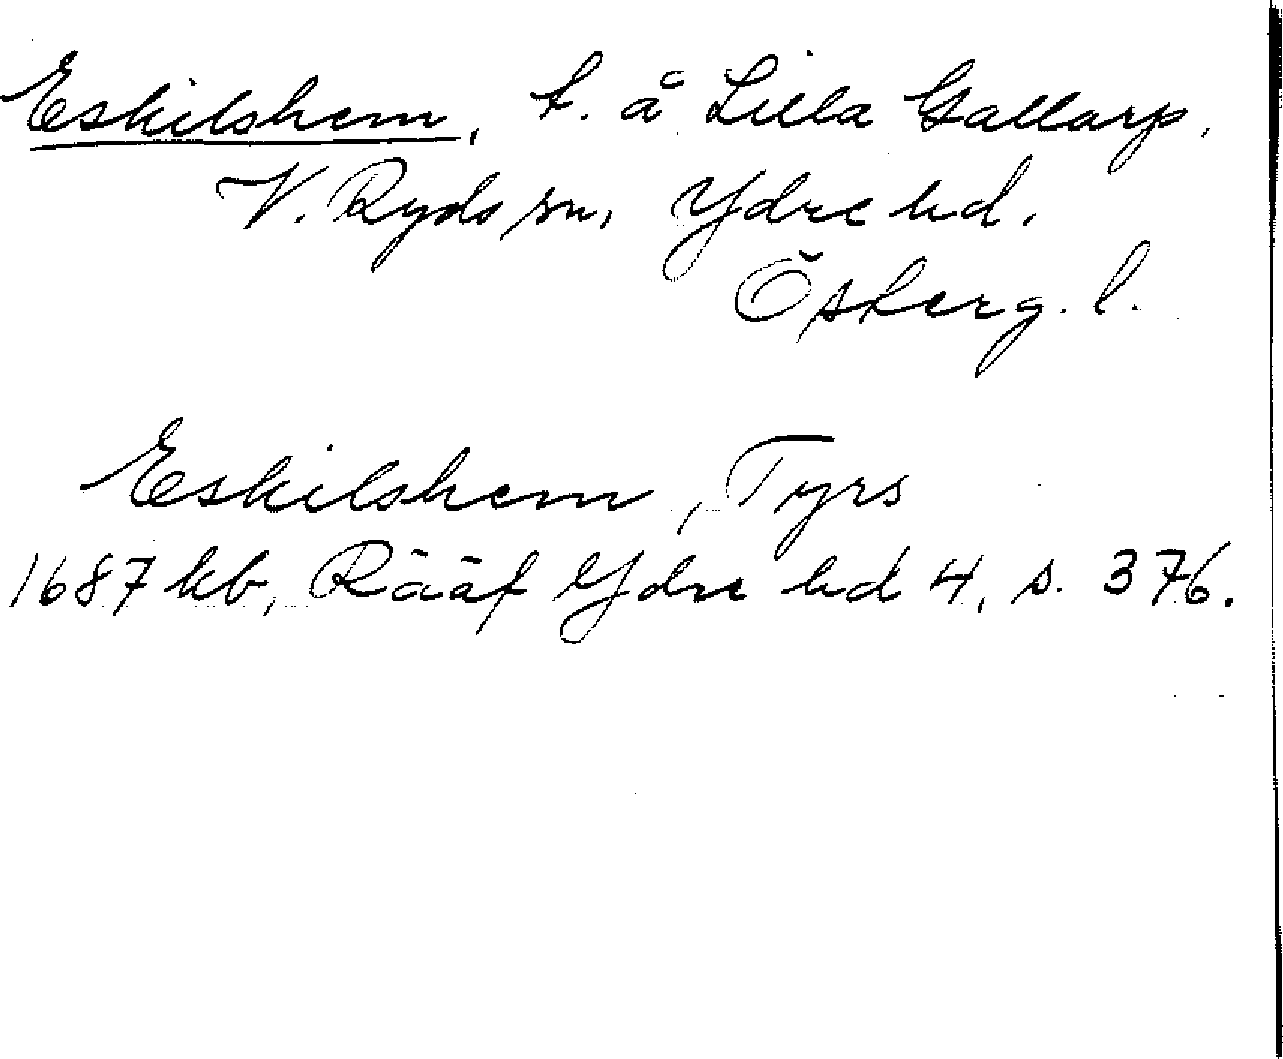 Eskilshem, t. å Lilla Gallarp,
V. Ryds sn, Ydre hd.
Österg. l.
Eskilshem, Tyrs
1687 kb, Rääf Ydre hd 4, s. 376.